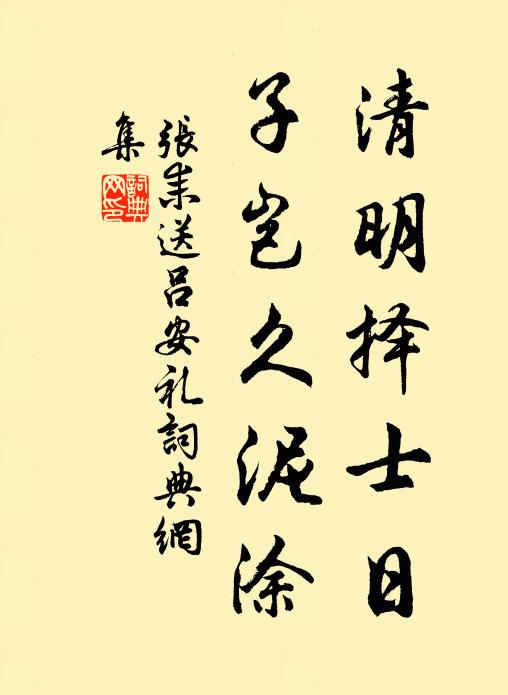 清明择士日
子岂久泥涂
張耒送吕安礼詞典網
集
詞典網印